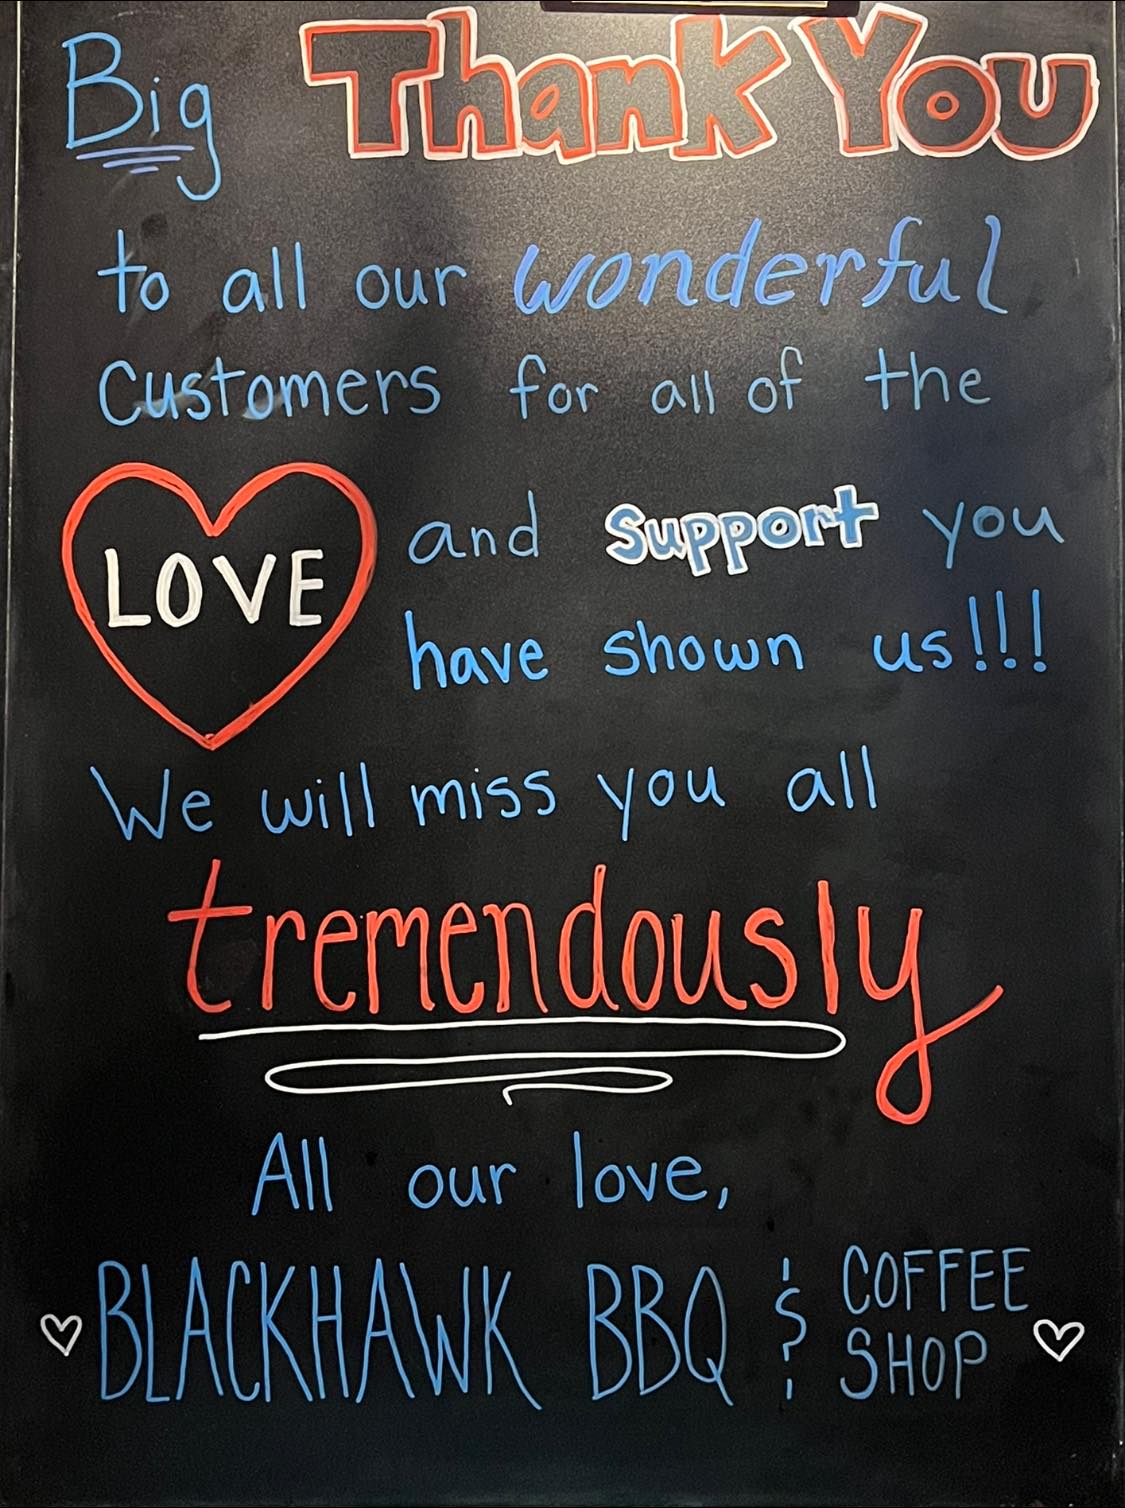 Big Thank You
to all our wonderful
customers for all of the
LOVE and support you
have shown us!!!
We will miss you all
tremendously
All our love,
BLACKHAWK BBQ & COFFEE
SHOP